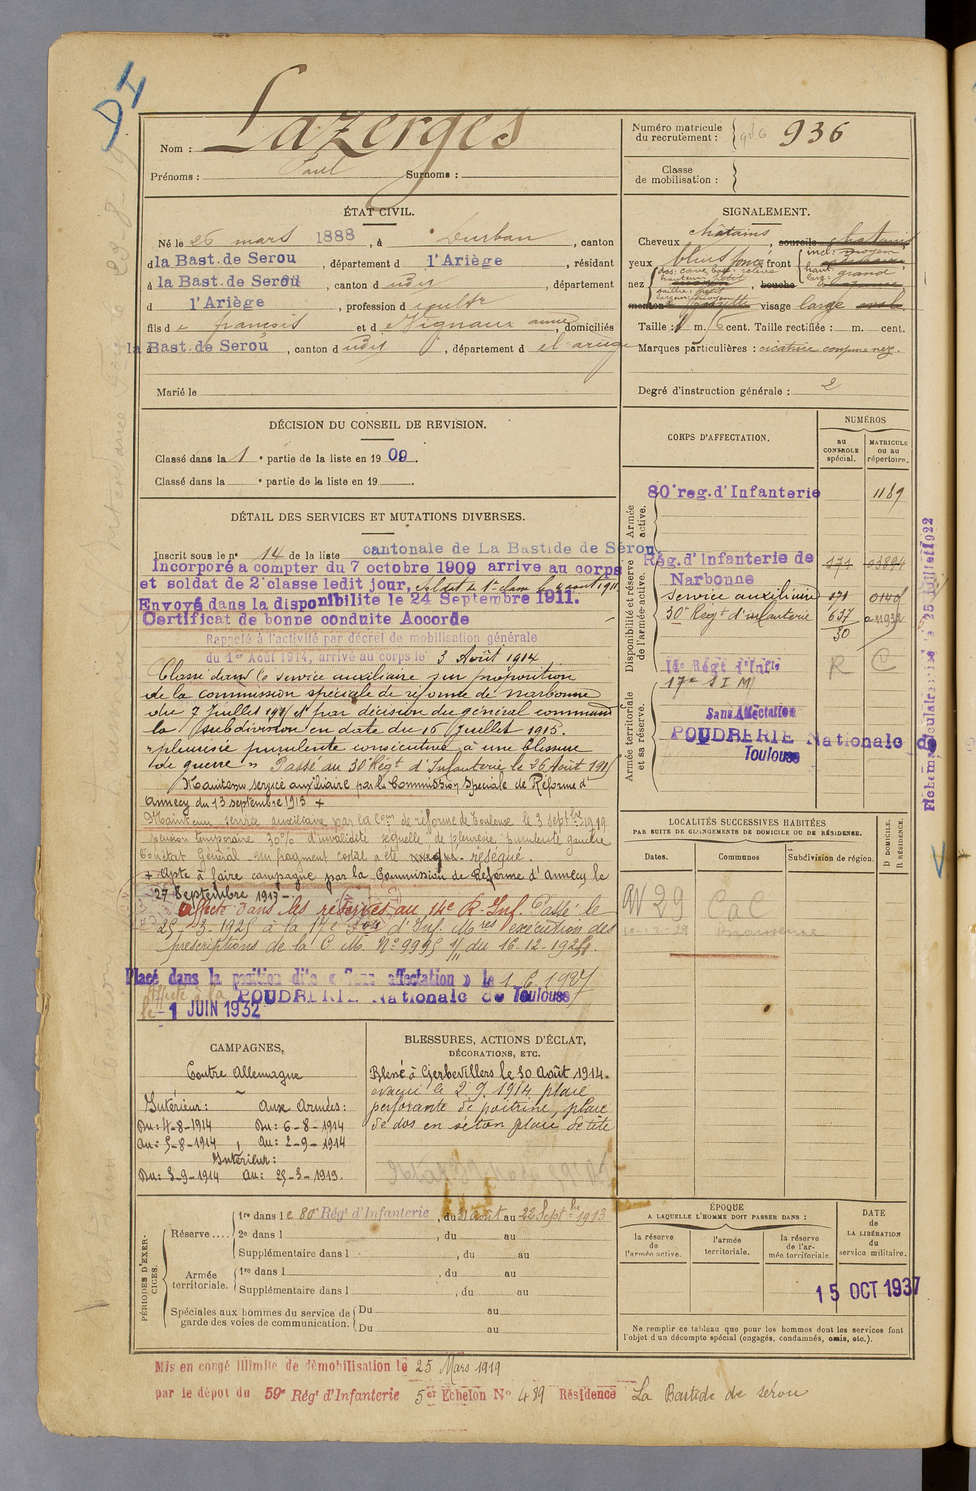 Nom : Lazerges
Prénoms : Paul Surnoms :
Numéro matricule du recrutement : 936
Classe de mobilisation :
ÉTAT CIVIL.
Né le 26 mars 1888, à Durban, canton
d la Bast. de Serou, département d l'Ariège, résidant
à la Bast. de Serou, canton d udit, département
d l'Ariège, profession d
fils de françois et de Vignaux anne, domiciliés
à la Bast. de Serou, canton d udit, département d e l'ariège
Marié le
SIGNALEMENT.
Cheveux châtains, sourcils chatains
yeux bleus foncé, front
nez bouche
menton visage large
Taille : 1 m. 6 cent. Taille rectifiée : m. cent.
Marques particulières : cicatrice nez.
Degré d'instruction générale : 2
DÉCISION DU CONSEIL DE REVISION.
Classé dans la 1e partie de la liste en 1909.
Classé dans la e partie de la liste en 19
DÉTAIL DES SERVICES ET MUTATIONS DIVERSES.
Inscrit sous le n° 14 de la liste cantonale de La Bastide de Sérou
Incorporé a compter du 7 octobre 1909 arrive au corps
et soldat de 2e classe ledit jour, soldat de 1e classe le aout 1911
Envoyé dans la disponibilite le 24 Septembre 1911.
Certificat de bonne conduite Accordé
Rappelé à l'activité par décret de mobilisation générale
du 1er Août 1914, arrivé au corps le 3 Août 1914
Classé dans le service auxiliaire sur proposition
de la commission spéciale de réforme de narbonne
du 7 Juillet 1915 et par décision du général command
la subdivision en date du 15 Juillet 1915.
"pleurésie purulente consécutive à une blessure
de guerre" Passé au 30e Régt d'Infanterie le 26 Août 1915
Maintenu service auxiliaire par la Commission Spéciale de Réforme d'
Annecy du 13 septembre 1915 +
Maintenu service auxiliaire par la Com de réforme de Toulouse le 3 septbre 1919
pension temporaire 30% d'invalidité séquelle de pleurésie purulente gauche
Bon état Général un fragment costal a été reséqué.
+ Apte à faire campagne par la Commission de Réforme d'Annecy le
27 Septembre 1917 -
Affecté dans les réserves au 14e R. Inf. Passé le
25-3-1925 à la 17e d'Inf. Mres exécution des
prescriptions de la C. M. N° 9995 1/11 du 16-12-192
Placé dans la position dite « Sans affectation » le 1.6.1927
Affecté à la POUDRERIE Nationale de Toulouse
le 1 JUIN 1932
CORPS D'AFFECTATION.
NUMÉROS
au CONTROLE spécial.
MATRICULE ou au répertoire.
Armée active.
80e reg. d'Infanterie 1189
Disponibilité et réserve de l'armée active.
Rég. d'Infanterie de Narbonne
Service auxiliaire
30e Régt d'infanterie 637
30
14e Régt d'Infie R C
Armée territoriale et sa réserve.
17e S I M
Sans Affectation
POUDRERIE Nationale de
Toulouse
LOCALITÉS SUCCESSIVES HABITÉES
PAR SUITE DE CHANGEMENTS DE DOMICILE OU DE RÉSIDENCE.
Dates. Communes Subdivision de région. D DOMICILE. R RÉSIDENCE.
N 29 CaC
CAMPAGNES.
Contre Allemagne
Intérieur : Aux Armées :
Du : 4-8-1914 Du : 6-8-1914
Au : 5-8-1914 Au : 2-9-1914
Intérieur :
Du : 3-9-1914 Au : 25-3-1919.
BLESSURES, ACTIONS D'ÉCLAT,
DÉCORATIONS, ETC.
Blessé à Gerbevillers le 30 Août 1914.
evacué le 2.9.1914 plaie
perforante de poitrine, plaie
de dos en séton plaie de tête
PÉRIODES D'EXERCICES.
Réserve.... 1re dans l e 80e Régt d'Infanterie, du 31 août au 22 Septbre 1913
2e dans l , du au
Supplémentaire dans l , du au
Armée territoriale. 1re dans l , du au
Supplémentaire dans l , du au
Spéciales aux hommes du service de garde des voies de communication. Du au
Du au
ÉPOQUE
A LAQUELLE L'HOMME DOIT PASSER DANS :
la réserve de l'armée active.
l'armée territoriale.
la réserve de l'armée territoriale.
DATE de LA LIBÉRATION du service militaire.
15 OCT 1937
Ne remplir ce tableau que pour les hommes dont les services font
l'objet d'un décompte spécial (engagés, condamnés, omis, etc.).
Mis en congé illimité de démobilisation le 25 Mars 1919
par le dépôt du 59e Régt d'Infanterie 5er Echelon N° 489 Résidence La Bastide de sérou